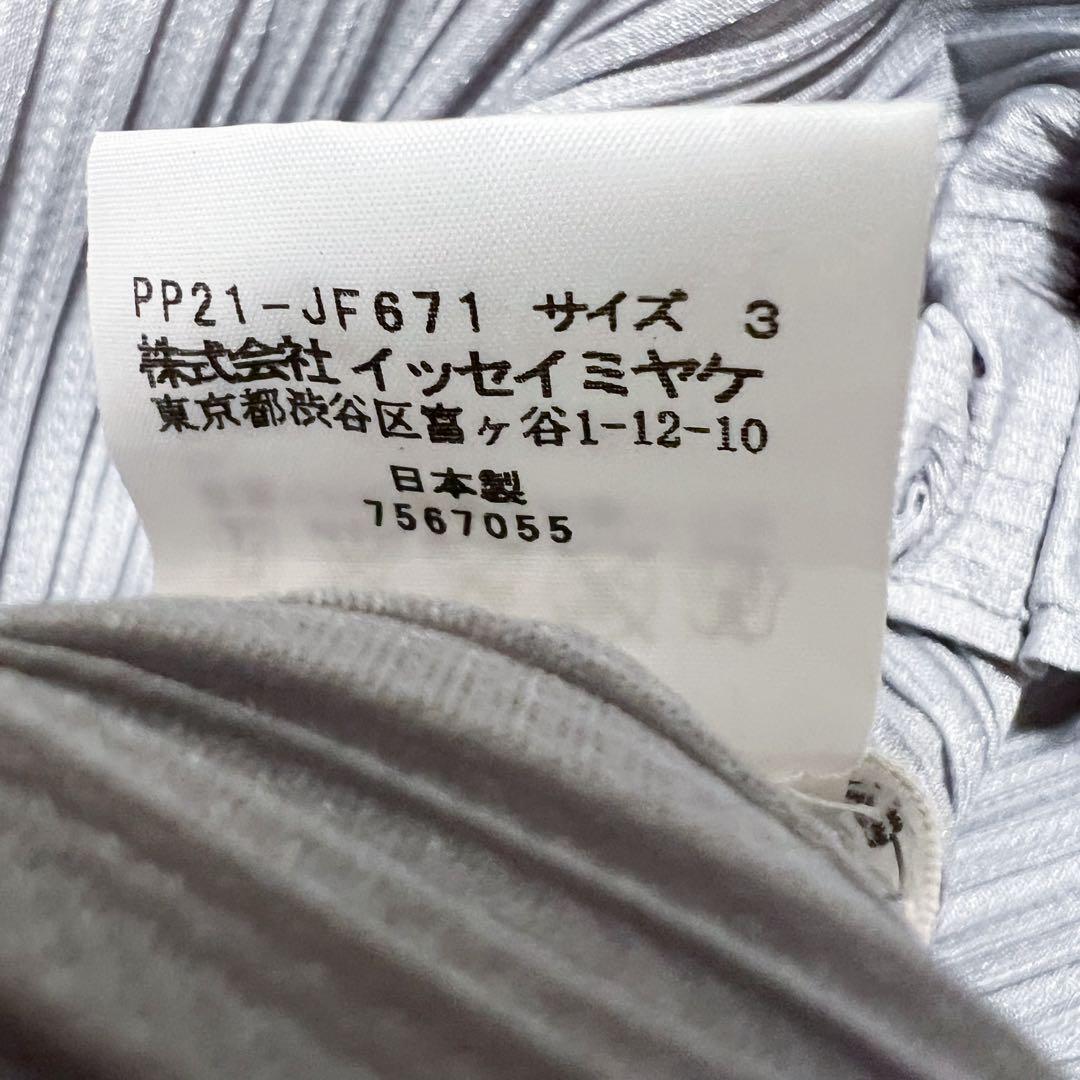 PP21-JF671 サイズ 3
株式会社イッセイミヤケ
東京都渋谷区富ヶ谷1-12-10
日本製
7567055